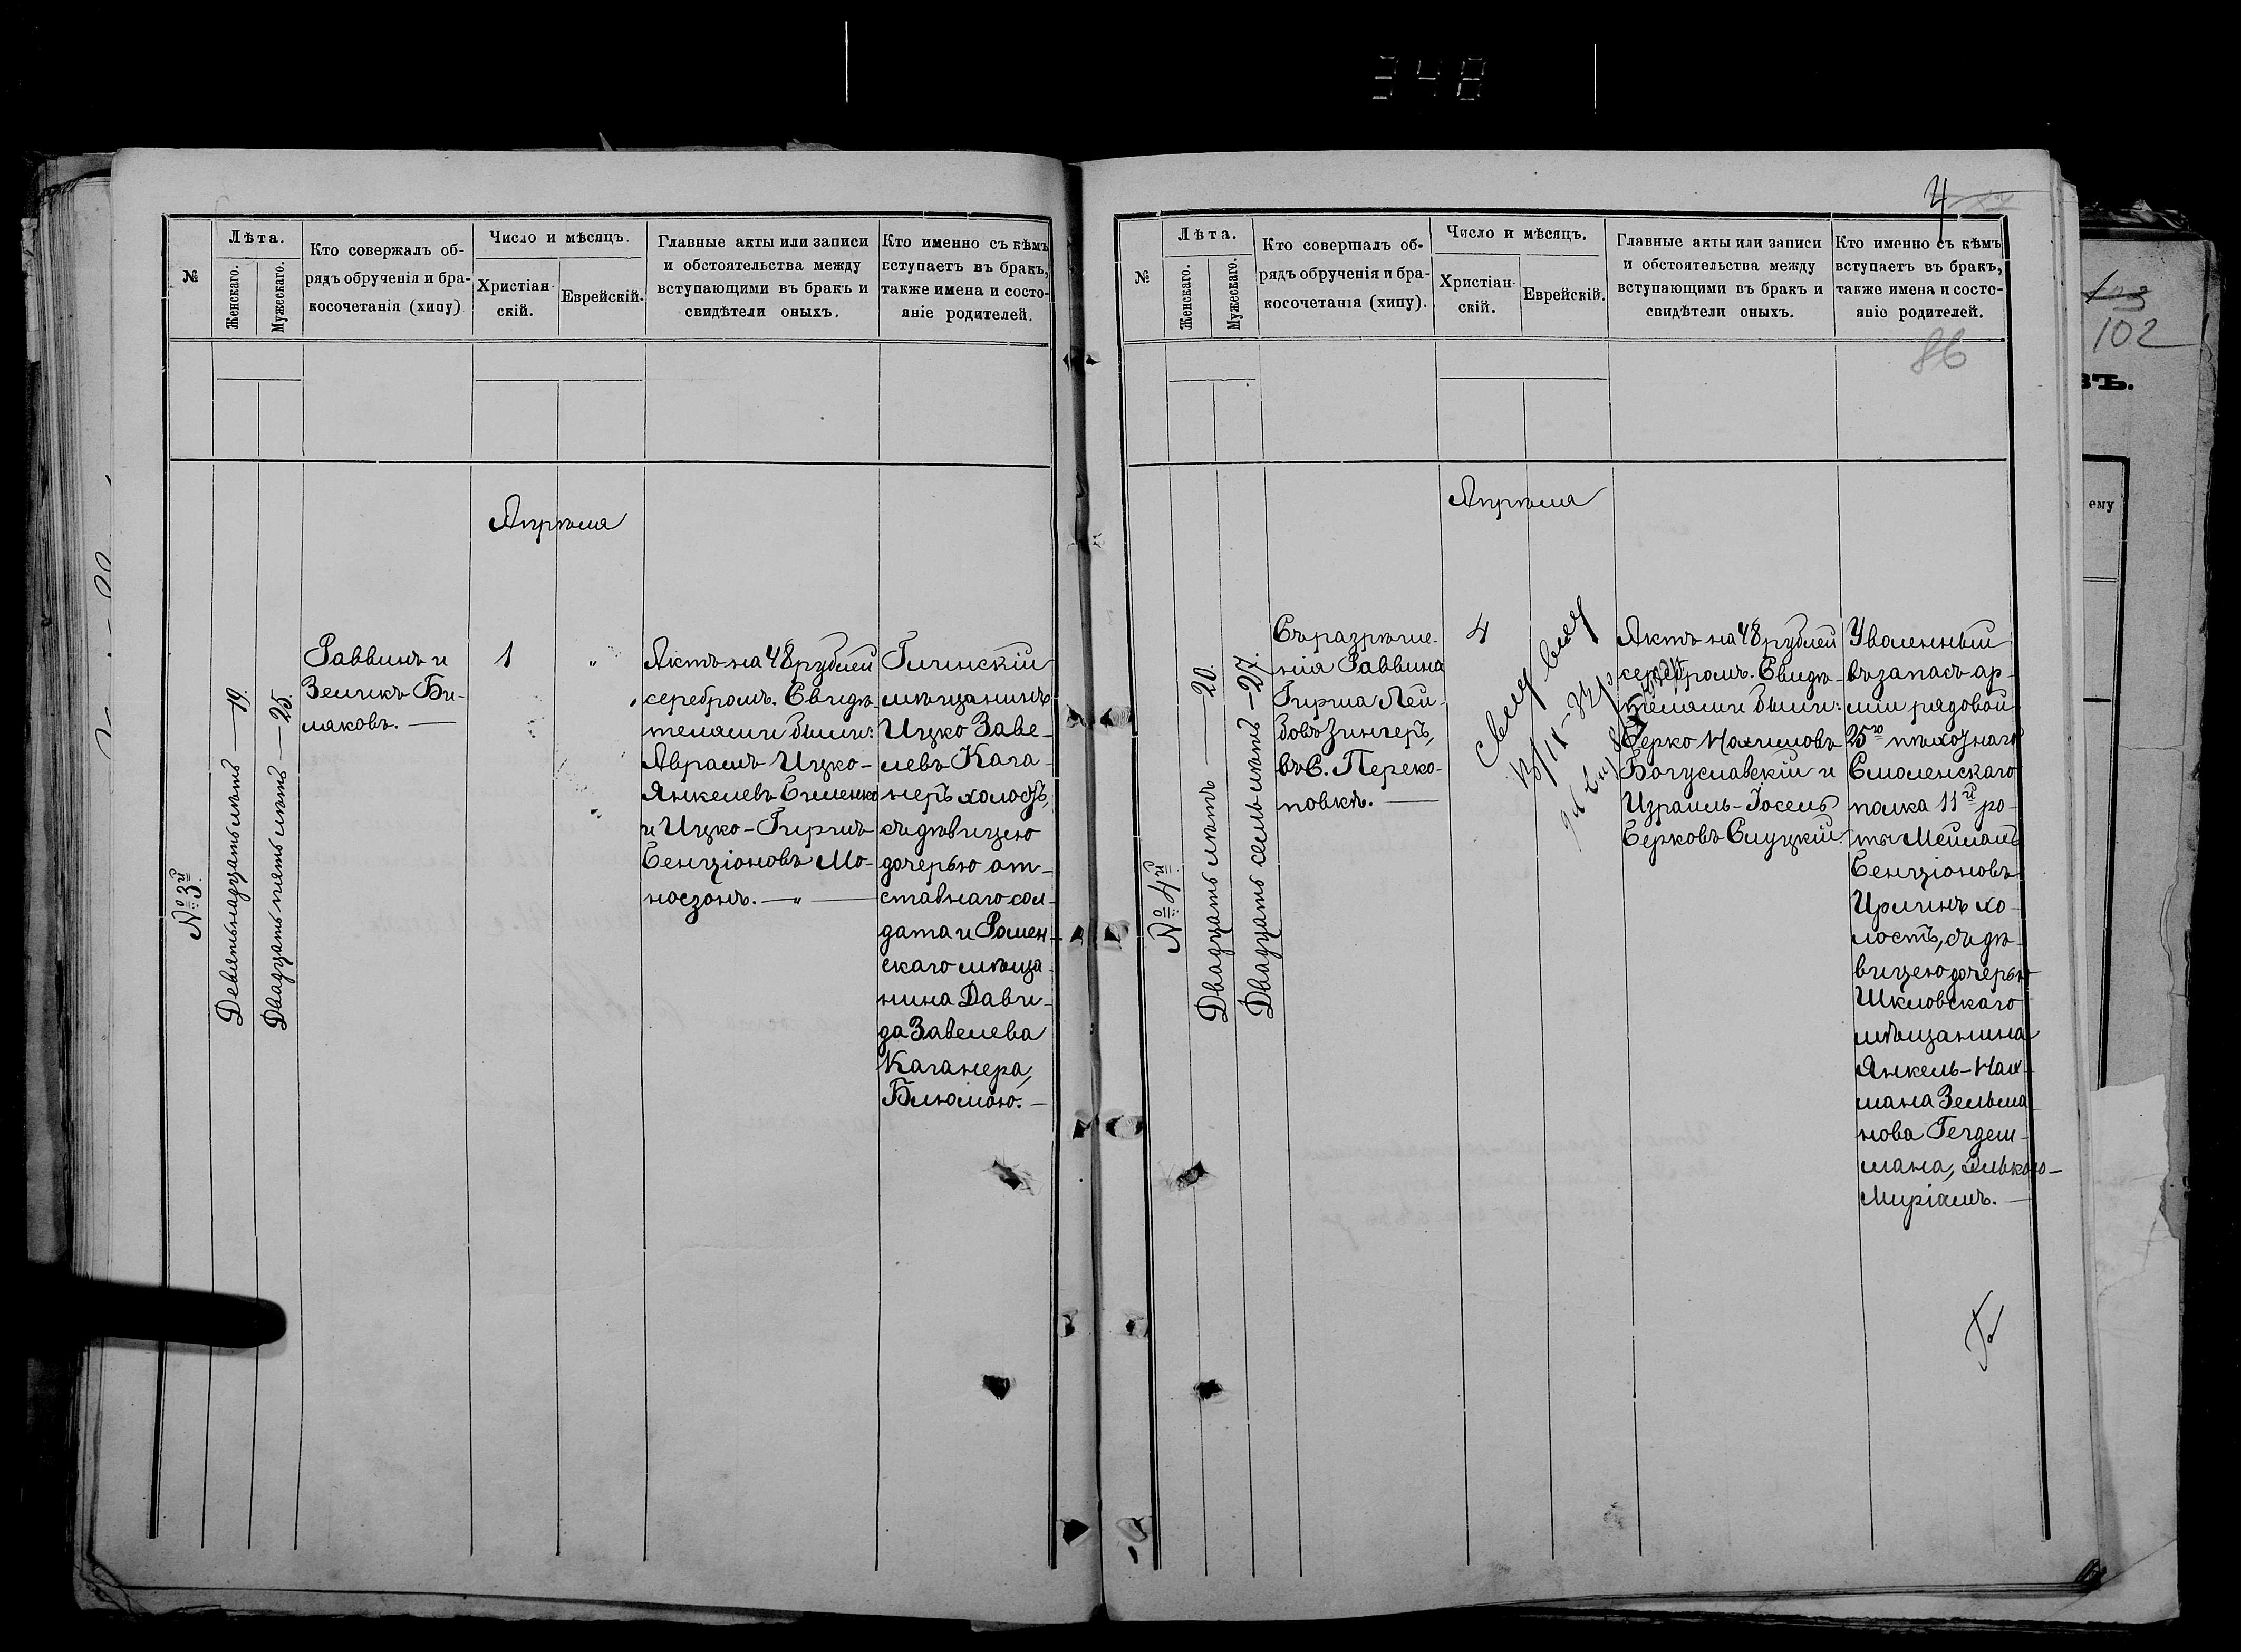 348
№
Лѣта.
Женскаго.
Мужескаго.
Кто совержалъ об-
рядъ обрученія и бра-
косочетанія (хипу)
Число и мѣсяцъ.
Христіан-
скій.
Еврейскій.
Главные акты или записи
и обстоятельства между
вступающими въ бракъ и
свидѣтели оныхъ.
Кто именно съ кѣмъ
вступаетъ въ бракъ,
также имена и состо-
яніе родителей.
Апрѣля
№ 3й
Девятьнадцать лѣтъ — 19.
Двадцать пять лѣтъ — 25.
Раввинъ и
Зеликъ Би-
ляковъ. —
1
"
Актъ на 48 рублей
серебромъ. Свидѣ-
телями были:
Аврамъ Ицко-
Янкелевъ Еиленко
и Ицко-Гиршъ
Бенціоновъ Мо-
носзонъ. — " —
Глинскій
мѣщанинъ
Ицко Заве-
левъ Кага-
неръ холостъ,
съ дѣвицею
дочерью от-
ставнаго сол-
дата и Ромен-
скаго мѣща-
нина Дави-
да Завелева
Каганера,
Блюмою. —
4
86
№
Лѣта.
Женскаго.
Мужескаго.
Кто совершалъ об-
рядъ обрученія и бра-
косочетанія (хипу).
Число и мѣсяцъ.
Христіан-
скій.
Еврейскій.
Главные акты или записи
и обстоятельства между
вступающими въ бракъ и
свидѣтели оныхъ.
Кто именно съ кѣмъ
вступаетъ въ бракъ,
также имена и состо-
яніе родителей.
Апрѣля
№ 4й
Двадцать лѣтъ — 20.
Двадцать семь лѣтъ — 27.
Съ разрѣше-
нія Раввина
Гирша Лей-
бовъ Зингеръ,
въ С. Переко-
повкѣ. —
4
Актъ на 48 рублей
серебромъ. Свидѣ-
телями были:
Берко Нахимовъ
Богуславскій и
Израиль-Іосель
Берковъ Слуцкій.
Уволенный
въ запасъ ар-
міи рядовой
25го пѣхотнаго
Смоленскаго
полка 11й ро-
ты Мейлахъ
Бенціоновъ
Ирлинъ хо-
лостъ, съ дѣ-
вицею дочерью
Шкловскаго
мѣщанина
Янкель-Нах-
мана Зельма-
нова Гегдеш-
мана,
Миріамъ. —
102
въ.
ему